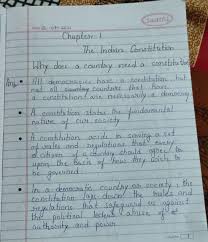 Chapter-1
The Indian Constitution
Why does a country need a constitution
Ans • All democracies have a constitution but
not all country countries that have
a constitution are necessarily a democracy
• A constitution states the fundamental
nature of our society
• A constitution in serving a set
of rules and regulations that every
citizen of a country should agree to
upon the basis of how they wish to
be governed
• In a democratic country or society, the
constitution lays down the rules and
regulations that safeguard us against
the political leders abuse of
authority and power